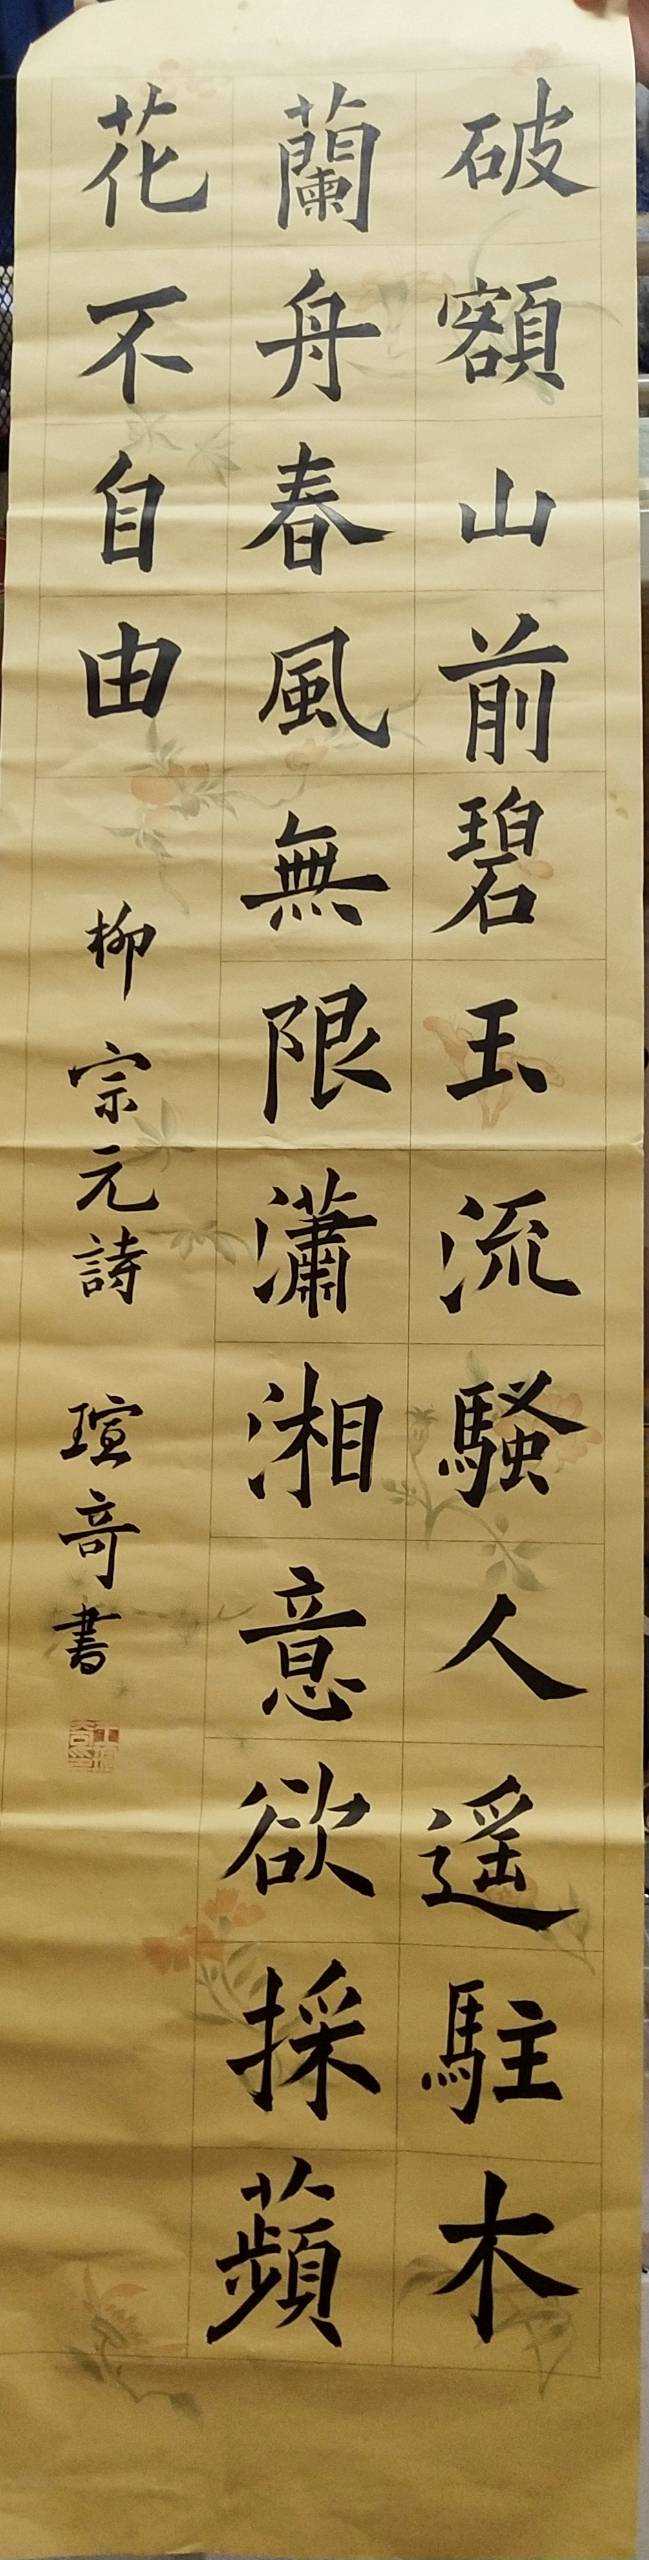 破額山前碧玉流騷人遥駐木
蘭舟春風無限瀟湘意欲採蘋
花不自由
柳宗元詩 瑄奇書